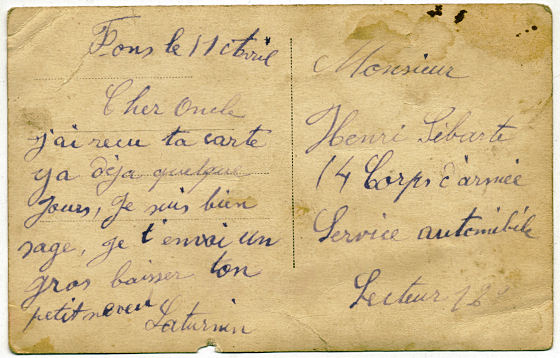 Fons le 11 Avril
Cher Oncle
j'ai recu ta carte
ya déja quelque
jours, je suis bien
sage, je t'envoi un
gros baisser ton
petit neveu
Saturnin
Monsieur
Henri Sébarte
14 Corps d'armée
Service automobile
Secteur